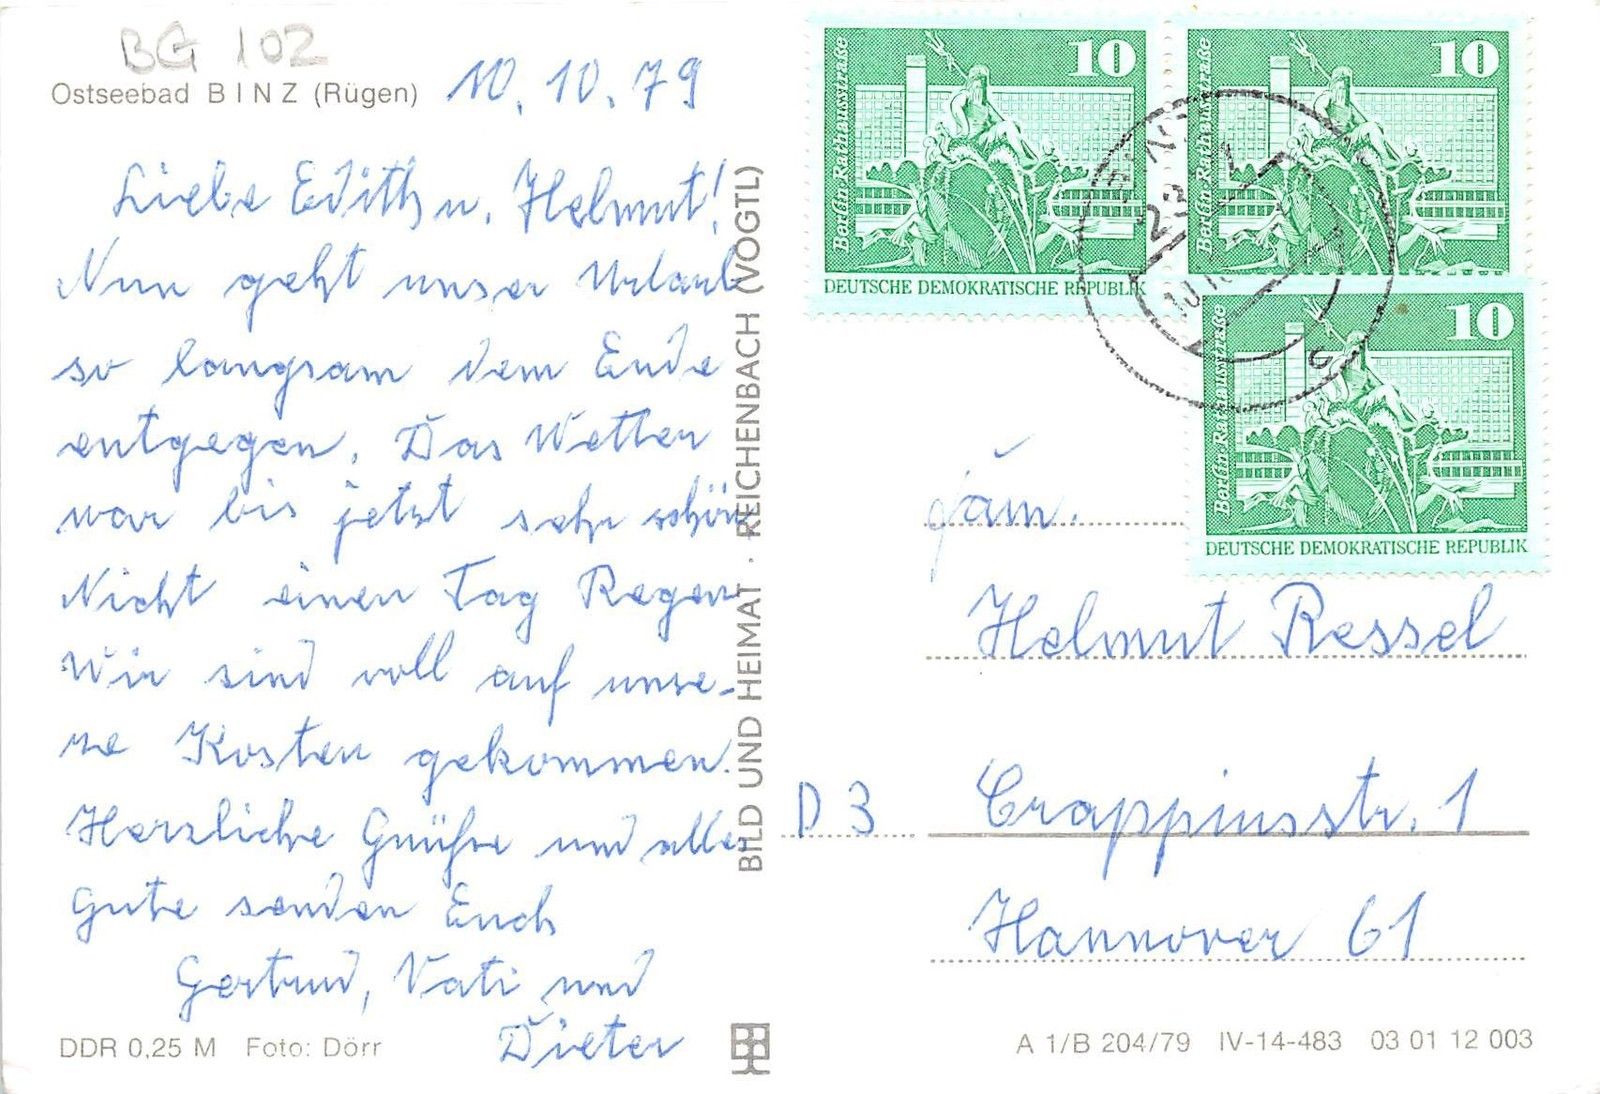 BG 102
Ostseebad BINZ (Rügen)
10. 10. 79
Liebe Edith u. Helmut!
Nun geht unser Urlaub
so langsam dem Ende
entgegen. Das Wetter
war bis jetzt sehr schön
Nicht einen Tag Regen
Wir sind voll auf unse-
re Kosten gekommen.
Herzliche Grüße und alles
Gute senden Euch
Gertrud, Vati und
Dieter
DDR 0,25 M Foto: Dörr
BILD UND HEIMAT · REICHENBACH (VOGTL)
10
Berlin Rathausstraße
DEUTSCHE DEMOKRATISCHE REPUBLIK
10
Berlin Rathausstraße
10
Berlin Rathausstraße
DEUTSCHE DEMOKRATISCHE REPUBLIK
23
10.10
c
Fam.
Helmut Ressel
D 3 Crappiusstr. 1
Hannover 61
A 1/B 204/79 IV-14-483 03 01 12 003